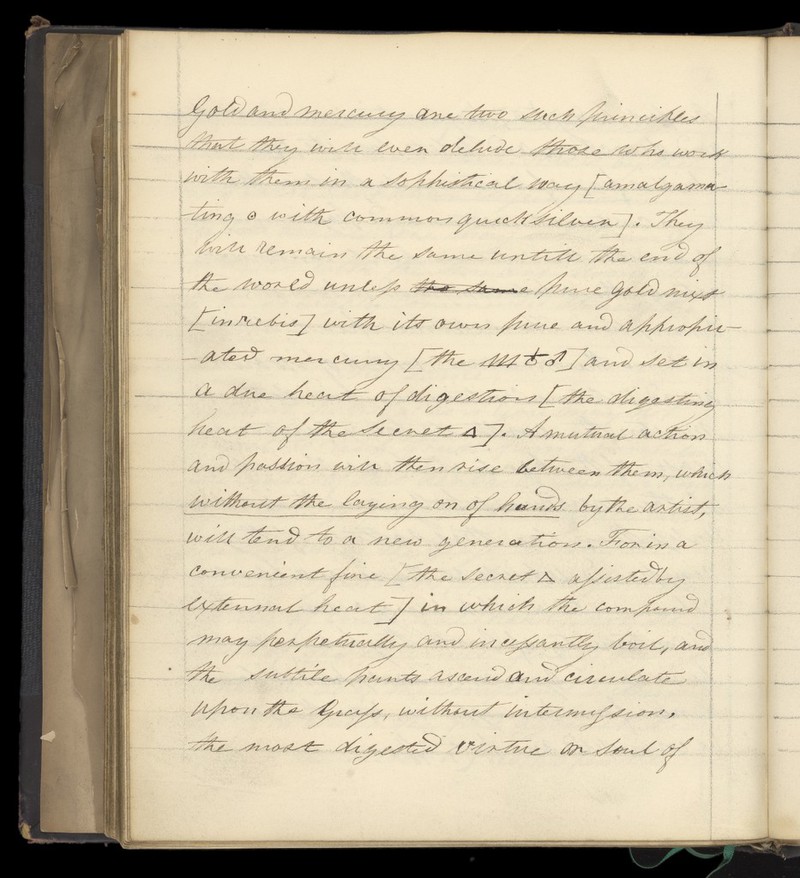 Gold and mercury are two such principles
that they will even delude those who work
with them in a sophistical way [amalgama-
ting ☉ with common quicksilver]. They
will remain the same untill the end of
the world unless the same pure gold mixt
[in rebis] with its own pure and appropri-
-ated mercury [the ♁♂] and set in
a due heat of digestion [the digesting
heat of the secret △]. A mutual action
and passion will then rise between them, which
without the laying on of hands by the artist,
will tend to a new generation. For in a
convenient fire [the secret △ assisted by
external heat] in which the compound
may perpetually and incessantly boil, and
the subtile parts ascend and circulate
upon the Gross, without intermission,
the most digested virtue or soul of